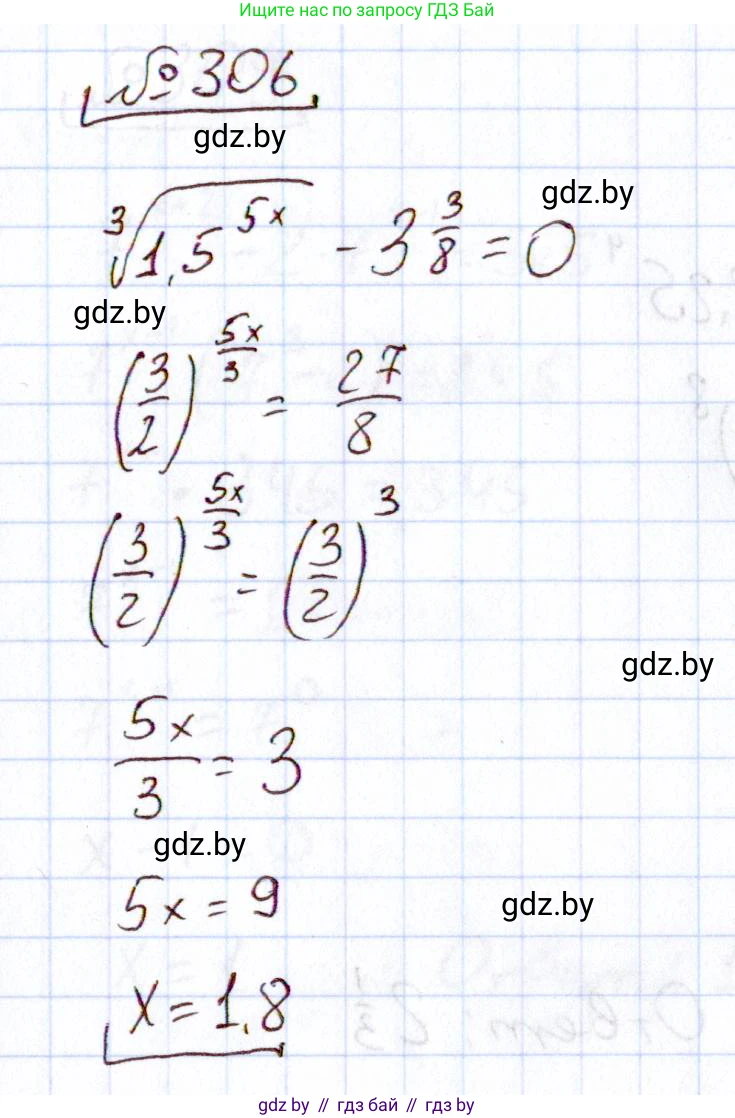 Ищите нас по запросу ГДЗ Бай
№306.
gdz.by
gdz.by
∛(1,5^(5x)) - 3 3/8 = 0
gdz.by
(3/2)^(5x/3) = 27/8
(3/2)^(5x/3) = (3/2)^3
gdz.by
5x/3 = 3
gdz.by
5x = 9
gdz.by
x = 1,8
gdz.by // гдз бай // gdz.by